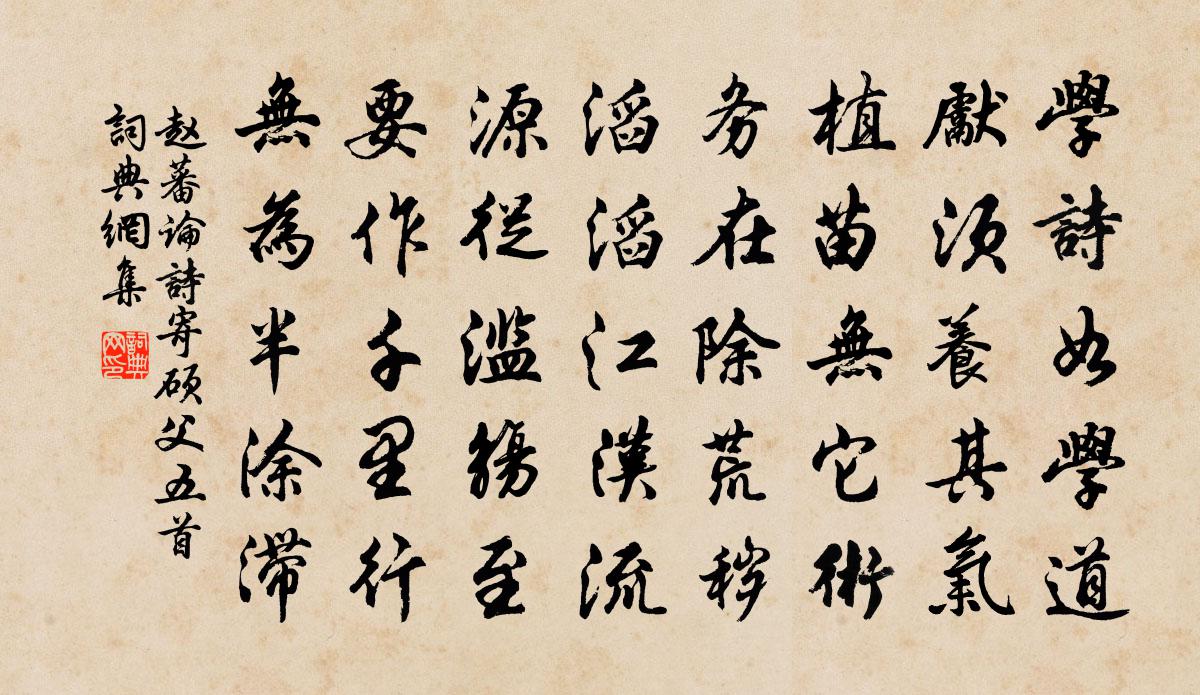 學詩如學道
獻須養其氣
植苗無它術
务在除荒秽
滔滔江漢流
源從滥觴至
要作千里行
無為半涂滯
赵蕃論詩寄硕父五首
詞典網集
詞典网印